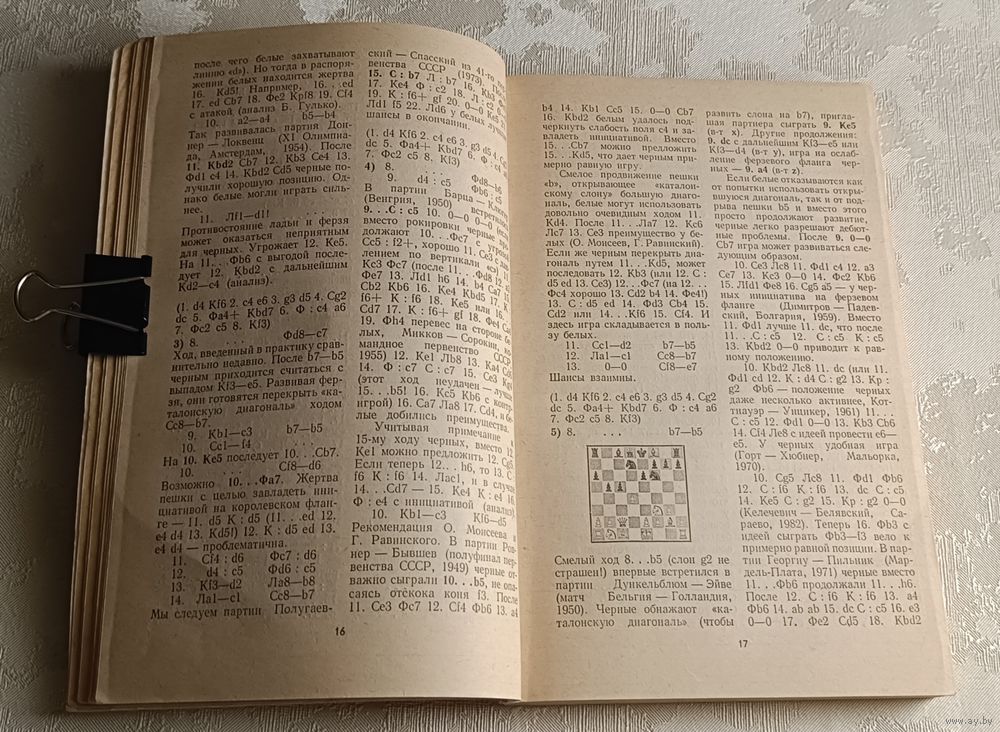 после чего белые захватывают
линию «d»). Но тогда в распоря-
жении белых находится жертва
16. Kd5! Например, 16. . .ed
17. ed Cb7 18. Фe2 Kpf8 19. Cf4
с атакой (анализ Б. Гулько).
10. . . a2—a4 b5—b4
Так развивалась партия Дон-
нер — Локвенц (XI Олимпиа-
да, Амстердам, 1954). После
11. Kbd2 Cb7 12. Kb3 Ce4 13.
Фd1 c4 14. Kbd2 Cd5 черные по-
лучили хорошую позицию. Од-
нако белые могли играть силь-
нее.
11. Лf1—d1! . . .
Противостояние ладьи и ферзя
может оказаться неприятным
для черных. Угрожает 12. Ke5.
На 11. . .Фb6 с выгодой после-
дует 12. Kbd2 с дальнейшим
Kd2—c4 (анализ).
(1. d4 Kf6 2. c4 e6 3. g3 d5 4. Cg2
dc 5. Фa4+ Kbd7 6. Ф : c4 a6
7. Фc2 c5 8. Kf3)
3) 8. . . . Фd8—c7
Ход, введенный в практику срав-
нительно недавно. После b7—b5
черным приходится считаться с
выпадом Kf3—e5. Развивая фер-
зя, они готовятся перекрыть «ка-
талонскую диагональ» ходом
Cc8—b7.
9. Kb1—c3 b7—b5
10. Cc1—f4 . . .
На 10. Ke5 последует 10. . .Cb7.
10. . . . Cf8—d6
Возможно 10. . .Фa7. Жертва
пешки с целью завладеть ини-
циативой на королевском флан-
ге — 11. d5 K : d5 (11. . .ed 12.
e4 d4 13. Kd5!) 12. K : d5 ed 13.
e4 d4 — проблематична.
11. Cf4 : d6 Фc7 : d6
12. d4 : c5 Фd6 : c5
13. Kf3—d2 Лa8—b8
14. Лa1—c1 Cc8—b7
Мы следуем партии Полугаев-
ский — Спасский из 41-го
венства СССР (1973)
15. C : b7 Л : b7 16.
17. Ke4 Ф : c2 18. Л : c2
19. K : f6+ gf 20. 0—0
Лd1 f5 22. Лd6 у белых лучшие
шансы в окончании.
(1. d4 Kf6 2. c4 e6 3. g3 d5 4.
dc 5. Фa4+ Kbd7 6. Ф : c4
7. Фc2 c5 8. Kf3)
4) 8. . . . Фd8—b6
9. d4 : c5 Фb6 : c5
В партии Барца —
(Венгрия, 1950) встретилось
9. . .C : c5 10. 0—0 0—0
вместо рокировки черные
должают 10. . .Фc7 с угрозой
Cc5 : f2+, хорошо 11. Ce3
лением по вертикали «c»)
Kc3 Фc7 (после 11. . .Фd8
Фe7 13. Лd1 h6 14. b4 Ca7
Cb2 Kb6 16. Ke4 Kbd5 17.
f6+ K : f6 18. Ke5 или 16.
Cd7 17. K : f6+ gf 18. Фe4
19. Фh4 перевес на стороне бе-
лых, Микков — Сорокин, ко-
мандное первенство СССР,
1955) 12. Ke1 Лb8 13. Ka4
14. Ф : c7 C : c7 15. Ce3
(этот ход неудачен — лучше
15. . .b5! 16. Kc5 Kb6 с контр-
игрой) 16. Ca7 Лa8 17. Cd4, и бе-
лые добились преимущества.
Учитывая примечание к
15-му ходу черных, вместо 12.
Ke1 можно предложить 12. Cg5.
Если теперь 12. . .h6, то 13. C :
f6 K : f6 14. Лac1, и в случае
14. . .Cd7 — 15. Ke4 K : e4 16.
Ф : e4 с инициативой (анализ).
10. Kb1—c3 Kf6—d5
Рекомендация О. Моисеева и
Г. Равинского. В партии Ров-
нер — Бывшев (полуфинал пер-
венства СССР, 1949) черные от-
важно сыграли 10. . .b5, не опа-
саясь отскока коня f3. После
11. Ce3 Фc7 12. Cf4 Фb6 13. a4
16
b4 14. Kb1 Ce5 15. 0—0 Cb7
16. Kbd2 белым удалось под-
черкнуть слабость поля c4 и за-
владеть инициативой. Вместо
15. . .Cb7 можно предложить
15. . .Kd5, что дает черным при-
мерно равную игру.
Смелое продвижение пешки
«b», открывающее «каталон-
скому слону» большую диаго-
наль, белые могут использовать
довольно очевидным ходом 11.
Kd4. После 11. . .Лa7 12. Kc6
Лc7 13. Ce3 преимущество у бе-
лых (О. Моисеев, Г. Равинский).
Если же черным перекрыть диа-
гональ путем 11. . .Kd5, может
последовать 12. Kb3 (или 12. C :
d5 ed 13. Ce3) 12. . .Фc7 (на 12. . .
Фc4 хорошо 13. Cd2 b4 14. Фe4!)
13. C : d5 ed 14. Фd3 Cb4 15.
Cd2 или 14. . .Kf6 15. Cf4. И
здесь игра складывается в поль-
зу белых.
11. Cc1—d2 b7—b5
12. Лa1—c1 Cc8—b7
13. 0—0 Cf8—e7
Шансы взаимны.
(1. d4 Kf6 2. c4 e6 3. g3 d5 4. Cg2
dc 5. Фa4+ Kbd7 6. Ф : c4 a6
7. Фc2 c5 8. Kf3)
5) 8. . . . b7—b5
Смелый ход 8. . .b5 (слон g2 не
страшен!) впервые встретился в
партии Дункельблюм — Эйве
(матч Бельгия — Голландия,
1950). Черные обнажают «ка-
талонскую диагональ» (чтобы
развить слона на b7), пригла-
шая партнера сыграть 9. Ke5
(в-т x). Другие продолжения:
9. dc с дальнейшим Kf3—e5 или
Kf3—d4 (в-т y), игра на ослаб-
ление ферзевого фланга чер-
ных — 9. a4 (в-т z).
Если белые отказываются как
от попытки использовать откры-
вшуюся диагональ, так и от под-
рыва пешки b5 и вместо этого
просто продолжают развитие,
черные легко разрешают дебют-
ные проблемы. После 9. 0—0
Cb7 игра может развиваться сле-
дующим образом.
10. Ce3 Лc8 11. Фd1 c4 12. a3
Ce7 13. Kc3 0—0 14. Фc2 Kb6
15. Лfd1 Фe8 16. Cg5 a5 — у чер-
ных инициатива на ферзевом
фланге (Димитров — Падев-
ский, Болгария, 1959). Вместо
11. Фd1 лучше 11. dc, что после
11. . .C : c5 12. C : c5 K : c5
13. Kbd2 0—0 приводит к рав-
ному положению.
10. Kbd2 Лc8 11. dc (или 11.
Фd1 cd 12. K : d4 C : g2 13. Kp :
g2 Фb6 — положение черных
даже несколько активнее, Кот-
тнауэр — Унцикер, 1961) 11. . .
C : c5 12. Фd1 0—0 13. Kb3 Cb6
14. Cf4 Лe8 с идеей провести e6—
e5. У черных удобная игра
(Горт — Хюбнер, Мальорка,
1970).
10. Cg5 Лc8 11. Фd1 Фb6
12. C : f6 K : f6 13. dc C : c5
14. Ke5 C : g2 15. Kp : g2 0—0
(Келечевич — Белявский, Са-
раево, 1982). Теперь 16. Фb3 с
идеей сыграть Фb3—f3 вело к
примерно равной позиции. В пар-
тии Георгиу — Пильник (Мар-
дель-Плата, 1971) черные вместо
11. . .Фb6 продолжали 11. . .h6.
После 12. C : f6 K : f6 13. a4
Фb6 14. ab ab 15. dc C : c5 16. e3
0—0 17. Фe2 Cd5 18. Kbd2
17
www.ay.by